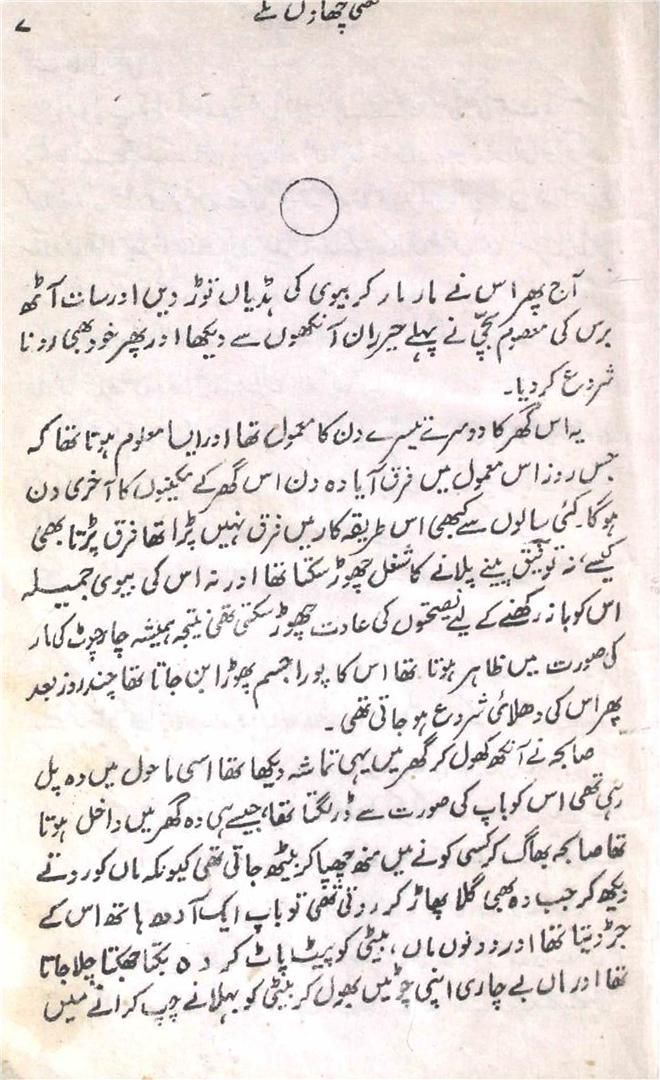 چھاؤں تلے
۷
آج پھر اس نے مار مار کر بیوی کی ہڈیاں توڑ دیں اور سات آٹھ
برس کی معصوم بچی نے پہلے حیران آنکھوں سے دیکھا اور پھر خود بھی رونا
شروع کر دیا۔
یہ اس گھر کا دوسرے تیسرے دن کا معمول تھا اور ایسا معلوم ہوتا تھا کہ
جس روز اس معمول میں فرق آیا وہ دن اس گھر کے مکینوں کا آخری دن
ہوگا۔ کئی سالوں سے کبھی اس طریقہ کار میں فرق نہیں پڑا تھا فرق پڑتا بھی
کیسے، نہ توفیق پینے پلانے کا شغل چھوڑ سکتا تھا اور نہ اس کی بیوی جمیلہ
اس کو باز رکھنے کے لیے نصیحتوں کی عادت چھوڑ سکتی تھی نتیجہ ہمیشہ چار چوٹ کی مار
کی صورت میں ظاہر ہوتا تھا اس کا پورا جسم پھوڑا بن جاتا تھا چند روز بعد
پھر اس کی دھلائی شروع ہو جاتی تھی۔
صابحہ نے آنکھ کھول کر گھر میں یہی تماشہ دیکھا تھا اسی ماحول میں وہ پل
رہی تھی اس کو باپ کی صورت سے ڈر لگتا تھا، جیسے ہی وہ گھر میں داخل ہوتا
تھا صابحہ بھاگ کر کسی کونے میں منھ چھپا کر بیٹھ جاتی تھی کیونکہ ماں کو روتے
دیکھ کر جب وہ بھی گلا پھاڑ کر روتی تھی تو باپ ایک آدھ ہاتھ اس کے
جڑ دیتا تھا اور دونوں ماں، بیٹی کو پیٹ پاٹ کر وہ بکتا جھکتا چلا جاتا
تھا اور ماں بے چاری اپنی چوٹیں بھول کر بیٹی کو بہلانے چپ کرانے میں